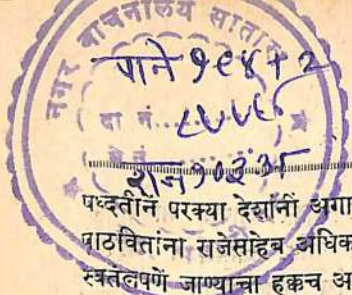 नगर वाचनालय सातारा
पाने १९४+२
दा नं.
पध्दतीनें परक्या देशांनीं अगा
पाठवितांना राजेसाहेब अधिक
स्वतंत्रपणें जाण्याचा हक्कच अ